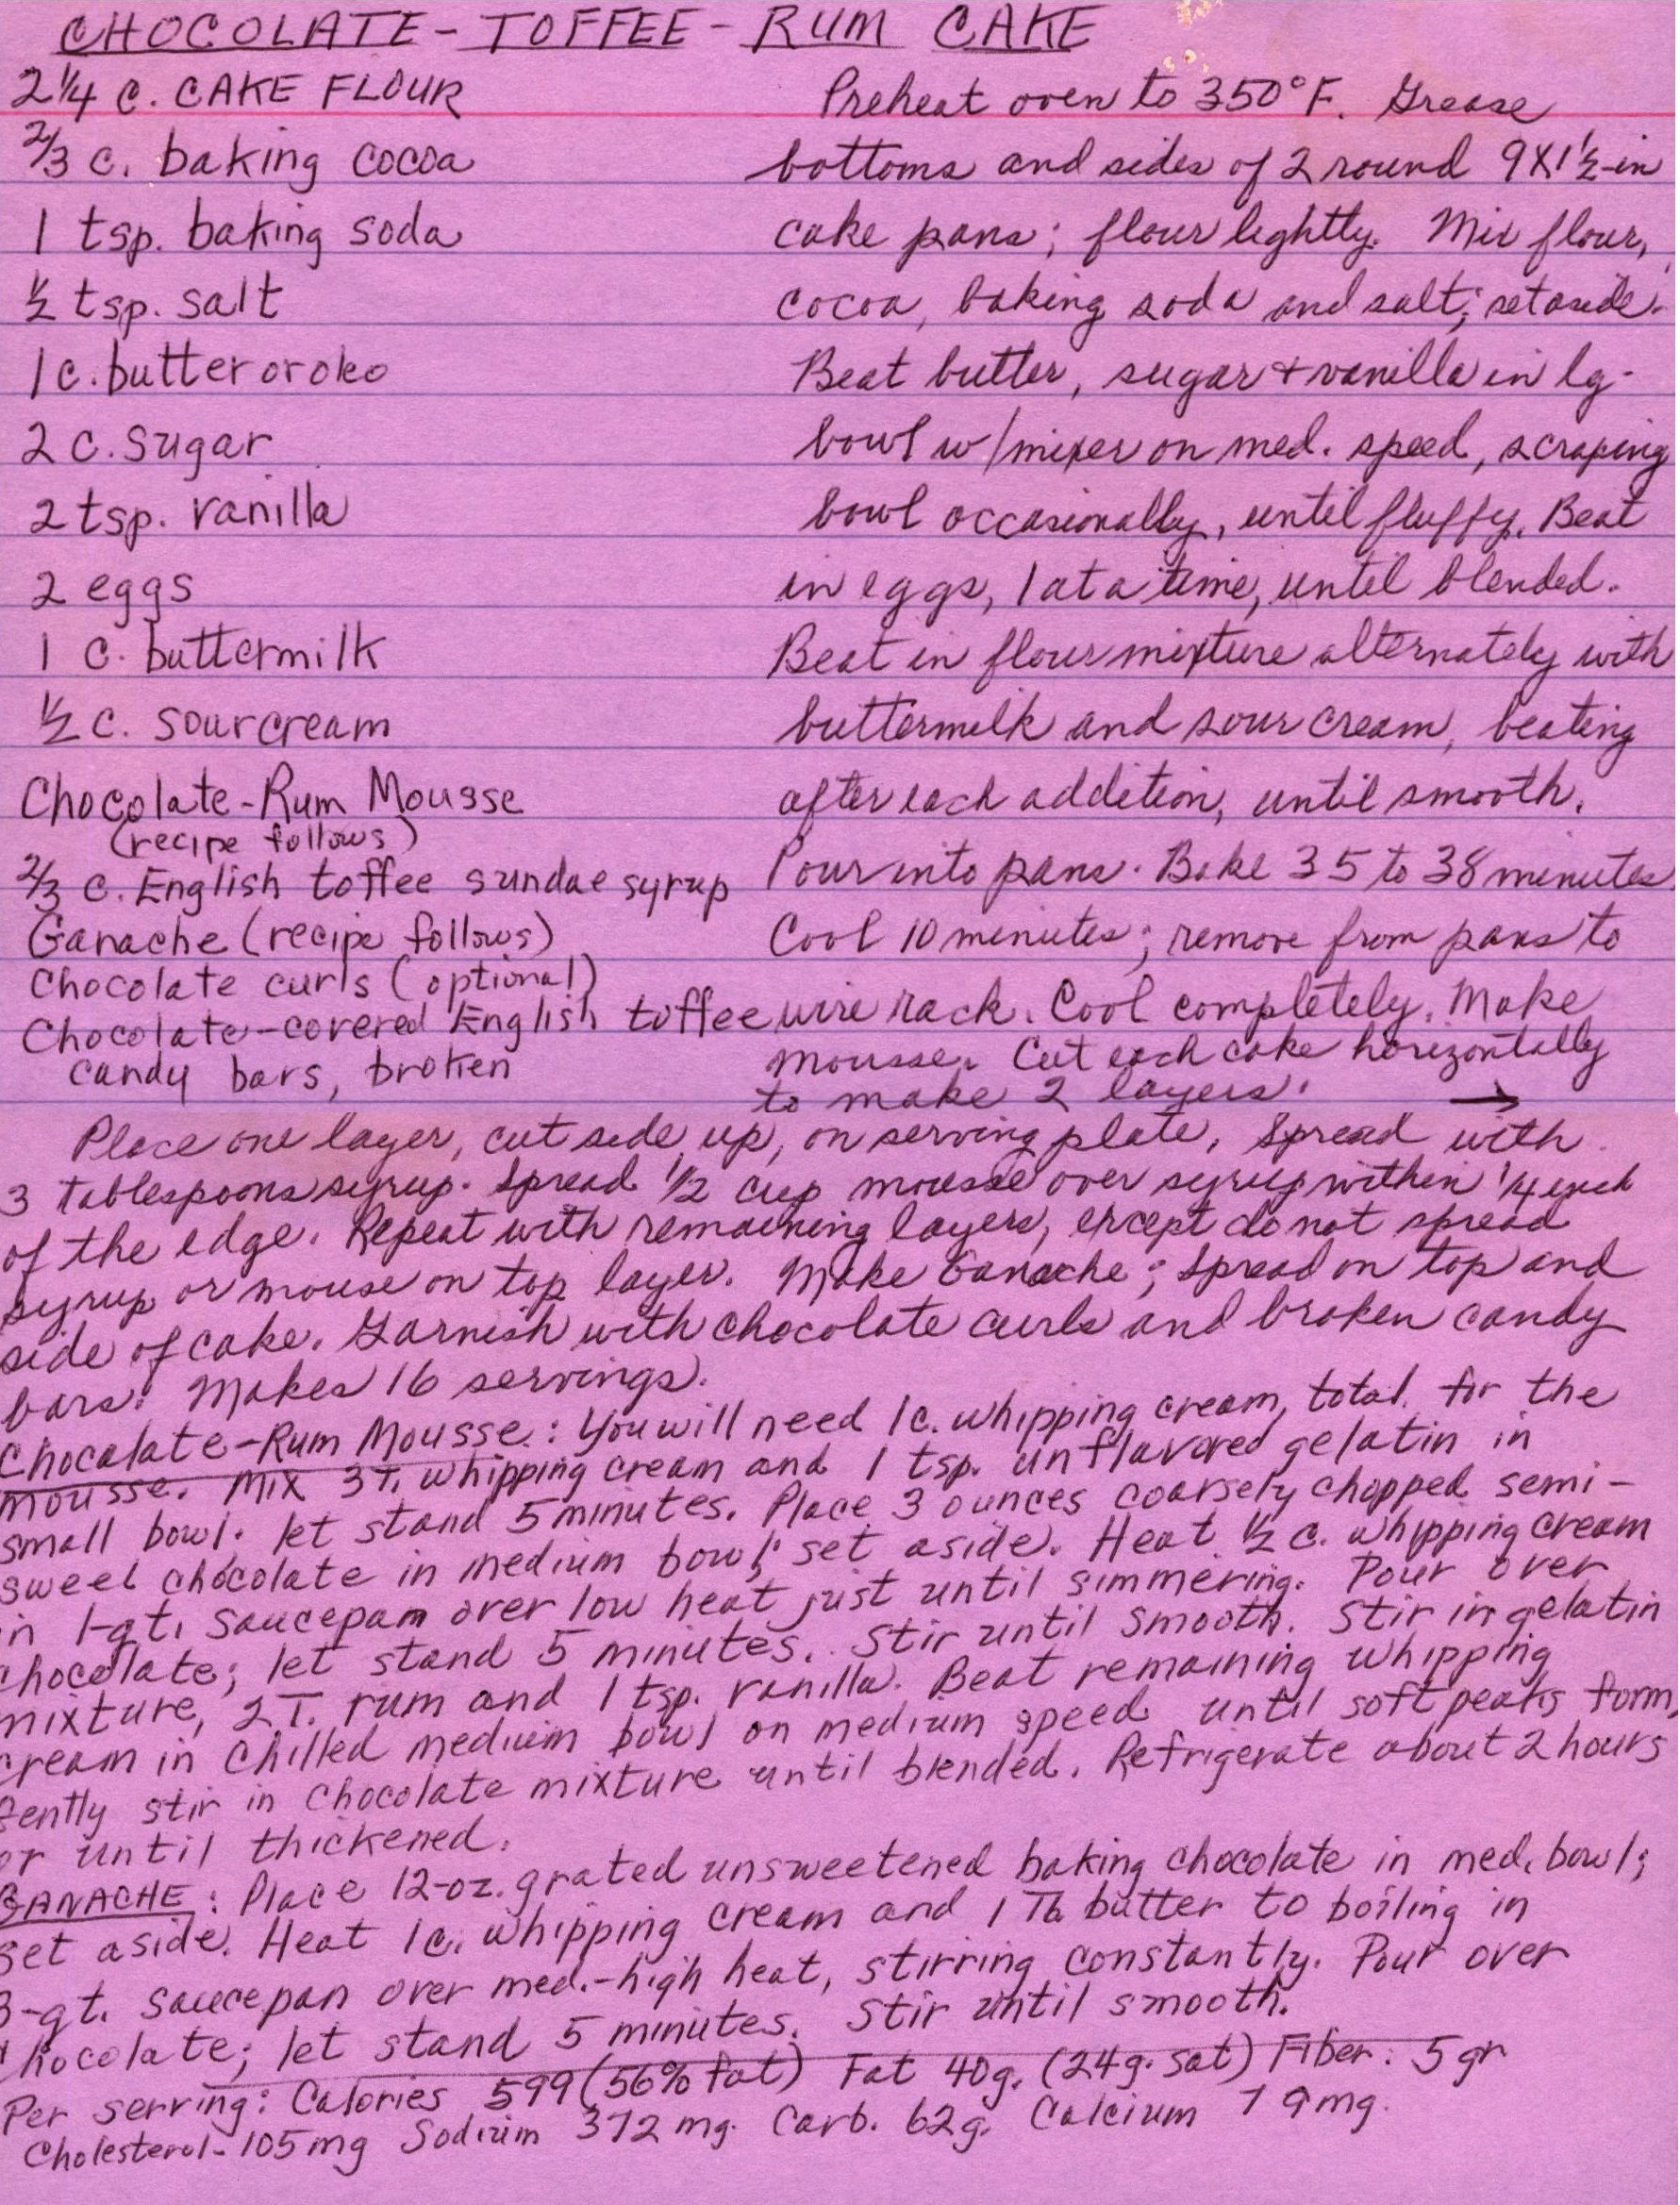 CHOCOLATE-TOFFEE-RUM CAKE
2 1/4 c. CAKE FLOUR
2/3 c. baking cocoa
1 tsp. baking soda
1/2 tsp. salt
1 c. butter or oleo
2 c. sugar
2 tsp. vanilla
2 eggs
1 c. buttermilk
1/2 c. sour cream
Chocolate-Rum Mousse
(recipe follows)
2/3 c. English toffee sundae syrup
Ganache (recipe follows)
Chocolate curls (optional)
Chocolate-covered English toffee
candy bars, broken
Preheat oven to 350°F. Grease
bottoms and sides of 2 round 9X1 1/2-in
cake pans; flour lightly. Mix flour,
cocoa, baking soda and salt; set aside.
Beat butter, sugar + vanilla in lg.
bowl w/mixer on med. speed, scraping
bowl occasionally, until fluffy. Beat
in eggs, 1 at a time, until blended.
Beat in flour mixture alternately with
buttermilk and sour cream, beating
after each addition, until smooth.
Pour into pans. Bake 35 to 38 minutes
Cool 10 minutes; remove from pans to
wire rack. Cool completely. Make
mousse. Cut each cake horizontally
to make 2 layers. →
Place one layer, cut side up, on serving plate, Spread with
3 tablespoons syrup. Spread 1/2 cup mousse over syrup within 1/4 inch
of the edge. Repeat with remaining layers, except do not spread
syrup or mouse on top layer. Make Ganache; spread on top and
side of cake. Garnish with chocolate curls and broken candy
bars. Makes 16 servings.
Chocolate-Rum Mousse: You will need 1 c. whipping cream, total, for the
mousse. Mix 3 T. whipping cream and 1 tsp. unflavored gelatin in
small bowl. let stand 5 minutes. Place 3 ounces coarsely chopped semi-
sweet chocolate in medium bowl; set aside. Heat 1/2 c. whipping cream
in 1-qt. saucepan over low heat just until simmering. Pour over
chocolate; let stand 5 minutes. Stir until smooth. Stir in gelatin
mixture, 2 T. rum and 1 tsp. vanilla. Beat remaining whipping
cream in chilled medium bowl on medium speed until soft peaks form,
Gently stir in chocolate mixture until blended. Refrigerate about 2 hours
or until thickened.
GANACHE: Place 12-oz. grated unsweetened baking chocolate in med. bowl;
set aside. Heat 1 c. whipping cream and 1 Tb butter to boiling in
3-qt. saucepan over med.-high heat, stirring constantly. Pour over
chocolate; let stand 5 minutes. Stir until smooth.
Per serving: Calories 599 (56% fat) Fat 40g. (24g. sat) Fiber. 5 gr
Cholesterol-105 mg Sodium 372 mg. Carb. 62g. Calcium 79mg.